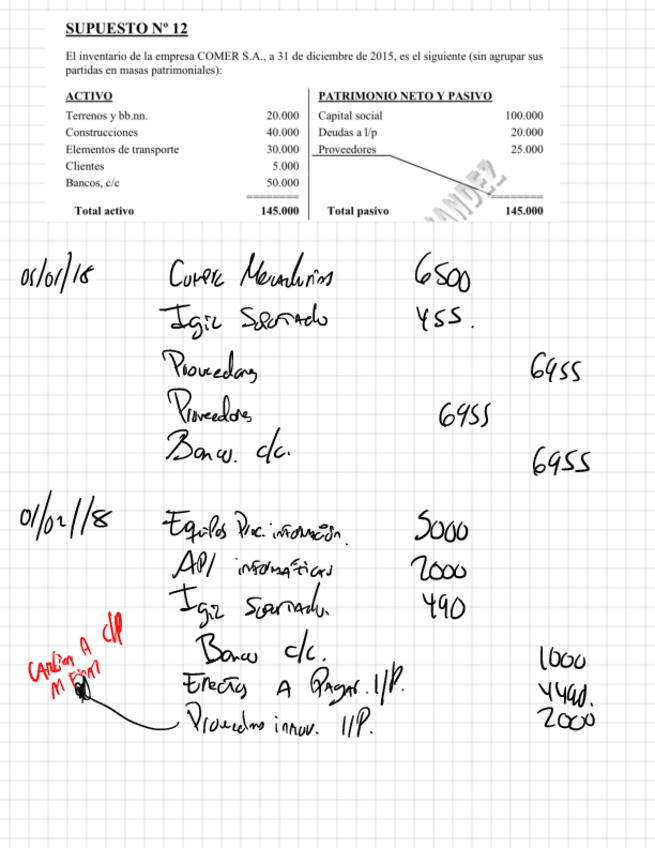 SUPUESTO Nº 12
El inventario de la empresa COMER S.A., a 31 de diciembre de 2015, es el siguiente (sin agrupar sus
partidas en masas patrimoniales):
ACTIVO PATRIMONIO NETO Y PASIVO
Terrenos y bb.nn. 20.000 Capital social 100.000
Construcciones 40.000 Deudas a l/p 20.000
Elementos de transporte 30.000 Proveedores 25.000
Clientes 5.000
Bancos, c/c 50.000
Total activo 145.000 Total pasivo 145.000
Mercaderias 6500
Igic Soportado 455.
Proveedores 6955
Proveedores 6955
Banco. c/c. 6955
01/02/18 Equipos Proc. información. 5000
API informáticas 2000
Igic Soportado. 490
Banco c/c. 1000
Efectos A Pagar. l/P. 4490.
Proveedores inmov. l/P. 2000
A c/p